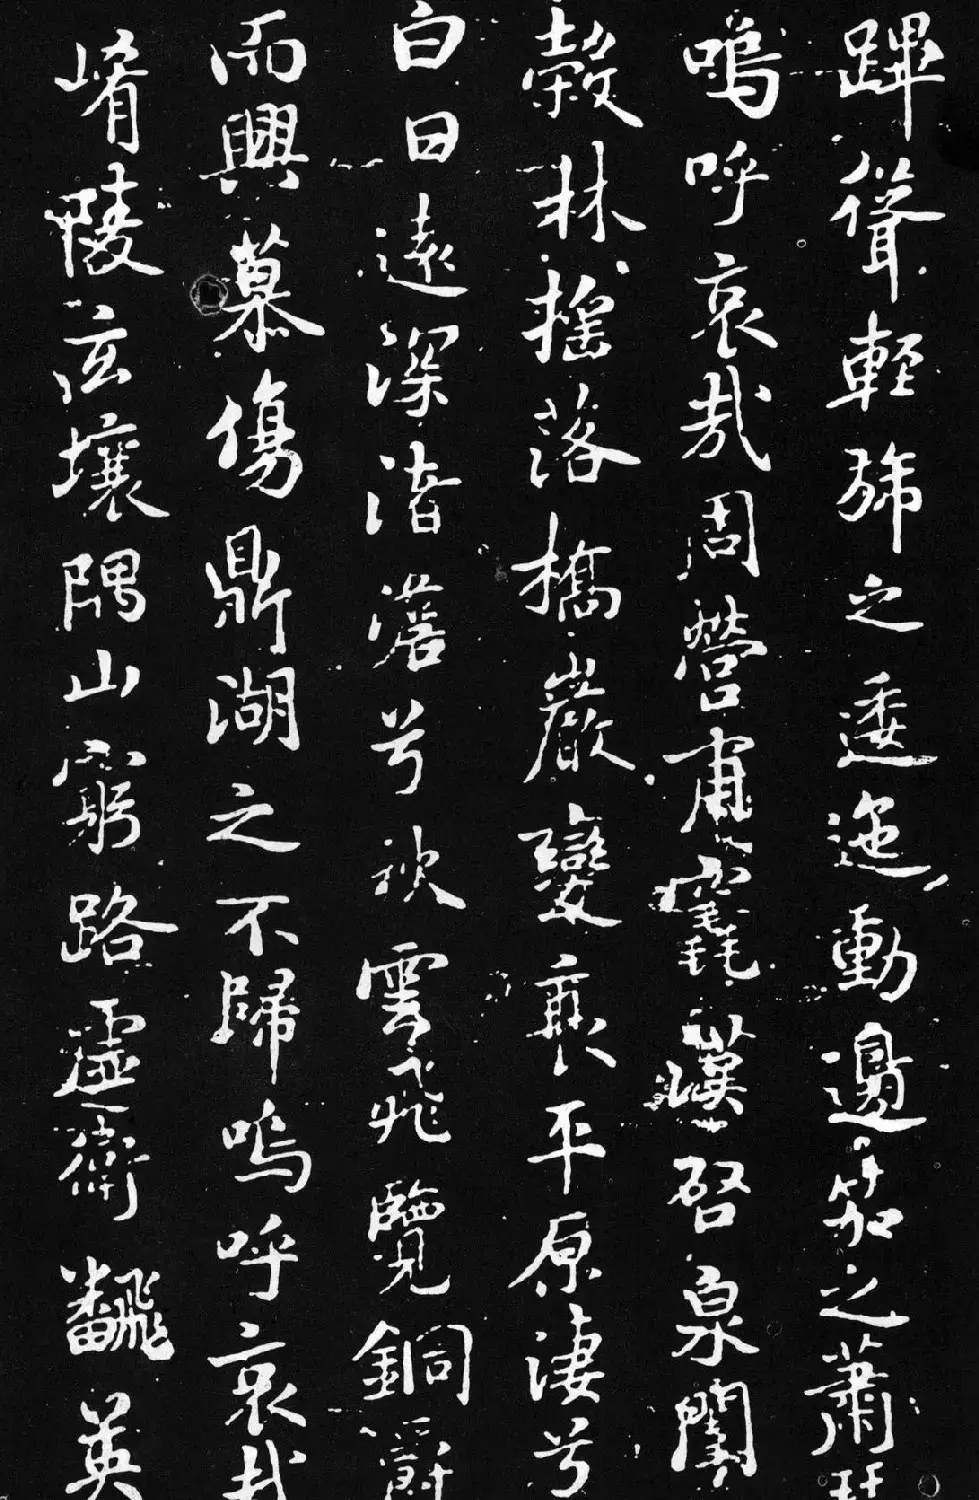 蹕聲輕旆之逶迤動邊笳之蕭
嗚呼哀哉周營甫竁漢啓泉闈
穀林搖落橋巖變衰平原淒兮
白日遠深渚兮秋雲飛覽銅爵
而興慕傷鼎湖之不歸嗚呼哀哉
崤陵玄壤隅山窮路虛衛飜英